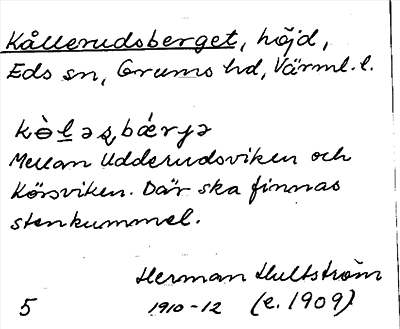 Kållerudsberget, höjd,
Eds sn, Grums hd, Värml. l.
kò̱ḻəʂbǽrjə
Mellan Udderudsviken och
Körsviken. Där ska finnas
stenkummel.
Herman Hultström
5 1910-12 (e. 1909)